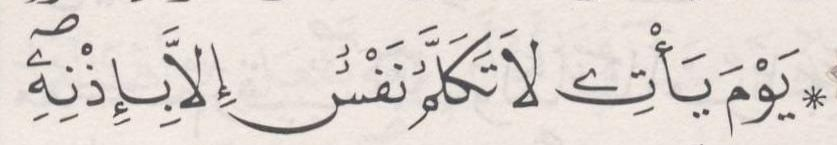 * يَوْمَ يَأْتِۦ لَا تَكَلَّمُ نَفْسٌ إِلَّا بِإِذْنِهِۦۖ